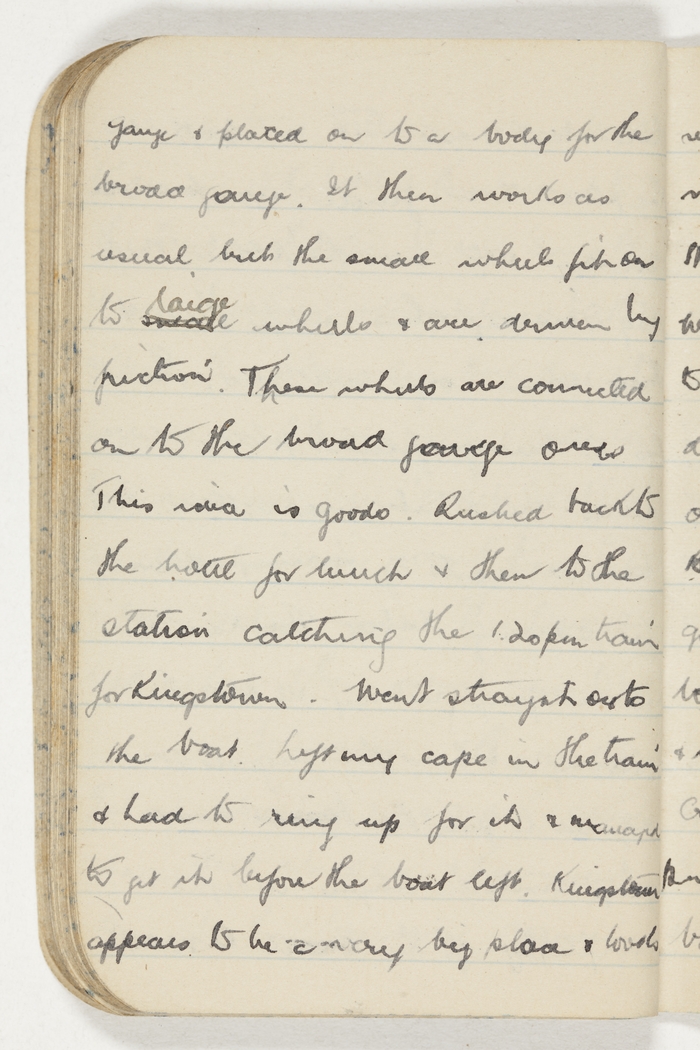 gauge & placed on to a body for the
broad gauge. It then works as
usual but the small wheels fit on
to large small wheels & are driven by
friction. These wheels are connected
on to the broad gauge ones
This idea is good. Rushed back to
the hotel for lunch & then to the
station catching the 1.20pm train
for Kingstown. Went straight onto
the boat. Left my cape in the train
& had to ring up for it & managed
to get it before the boat left. Kingstown
appears to be a very big place & loods